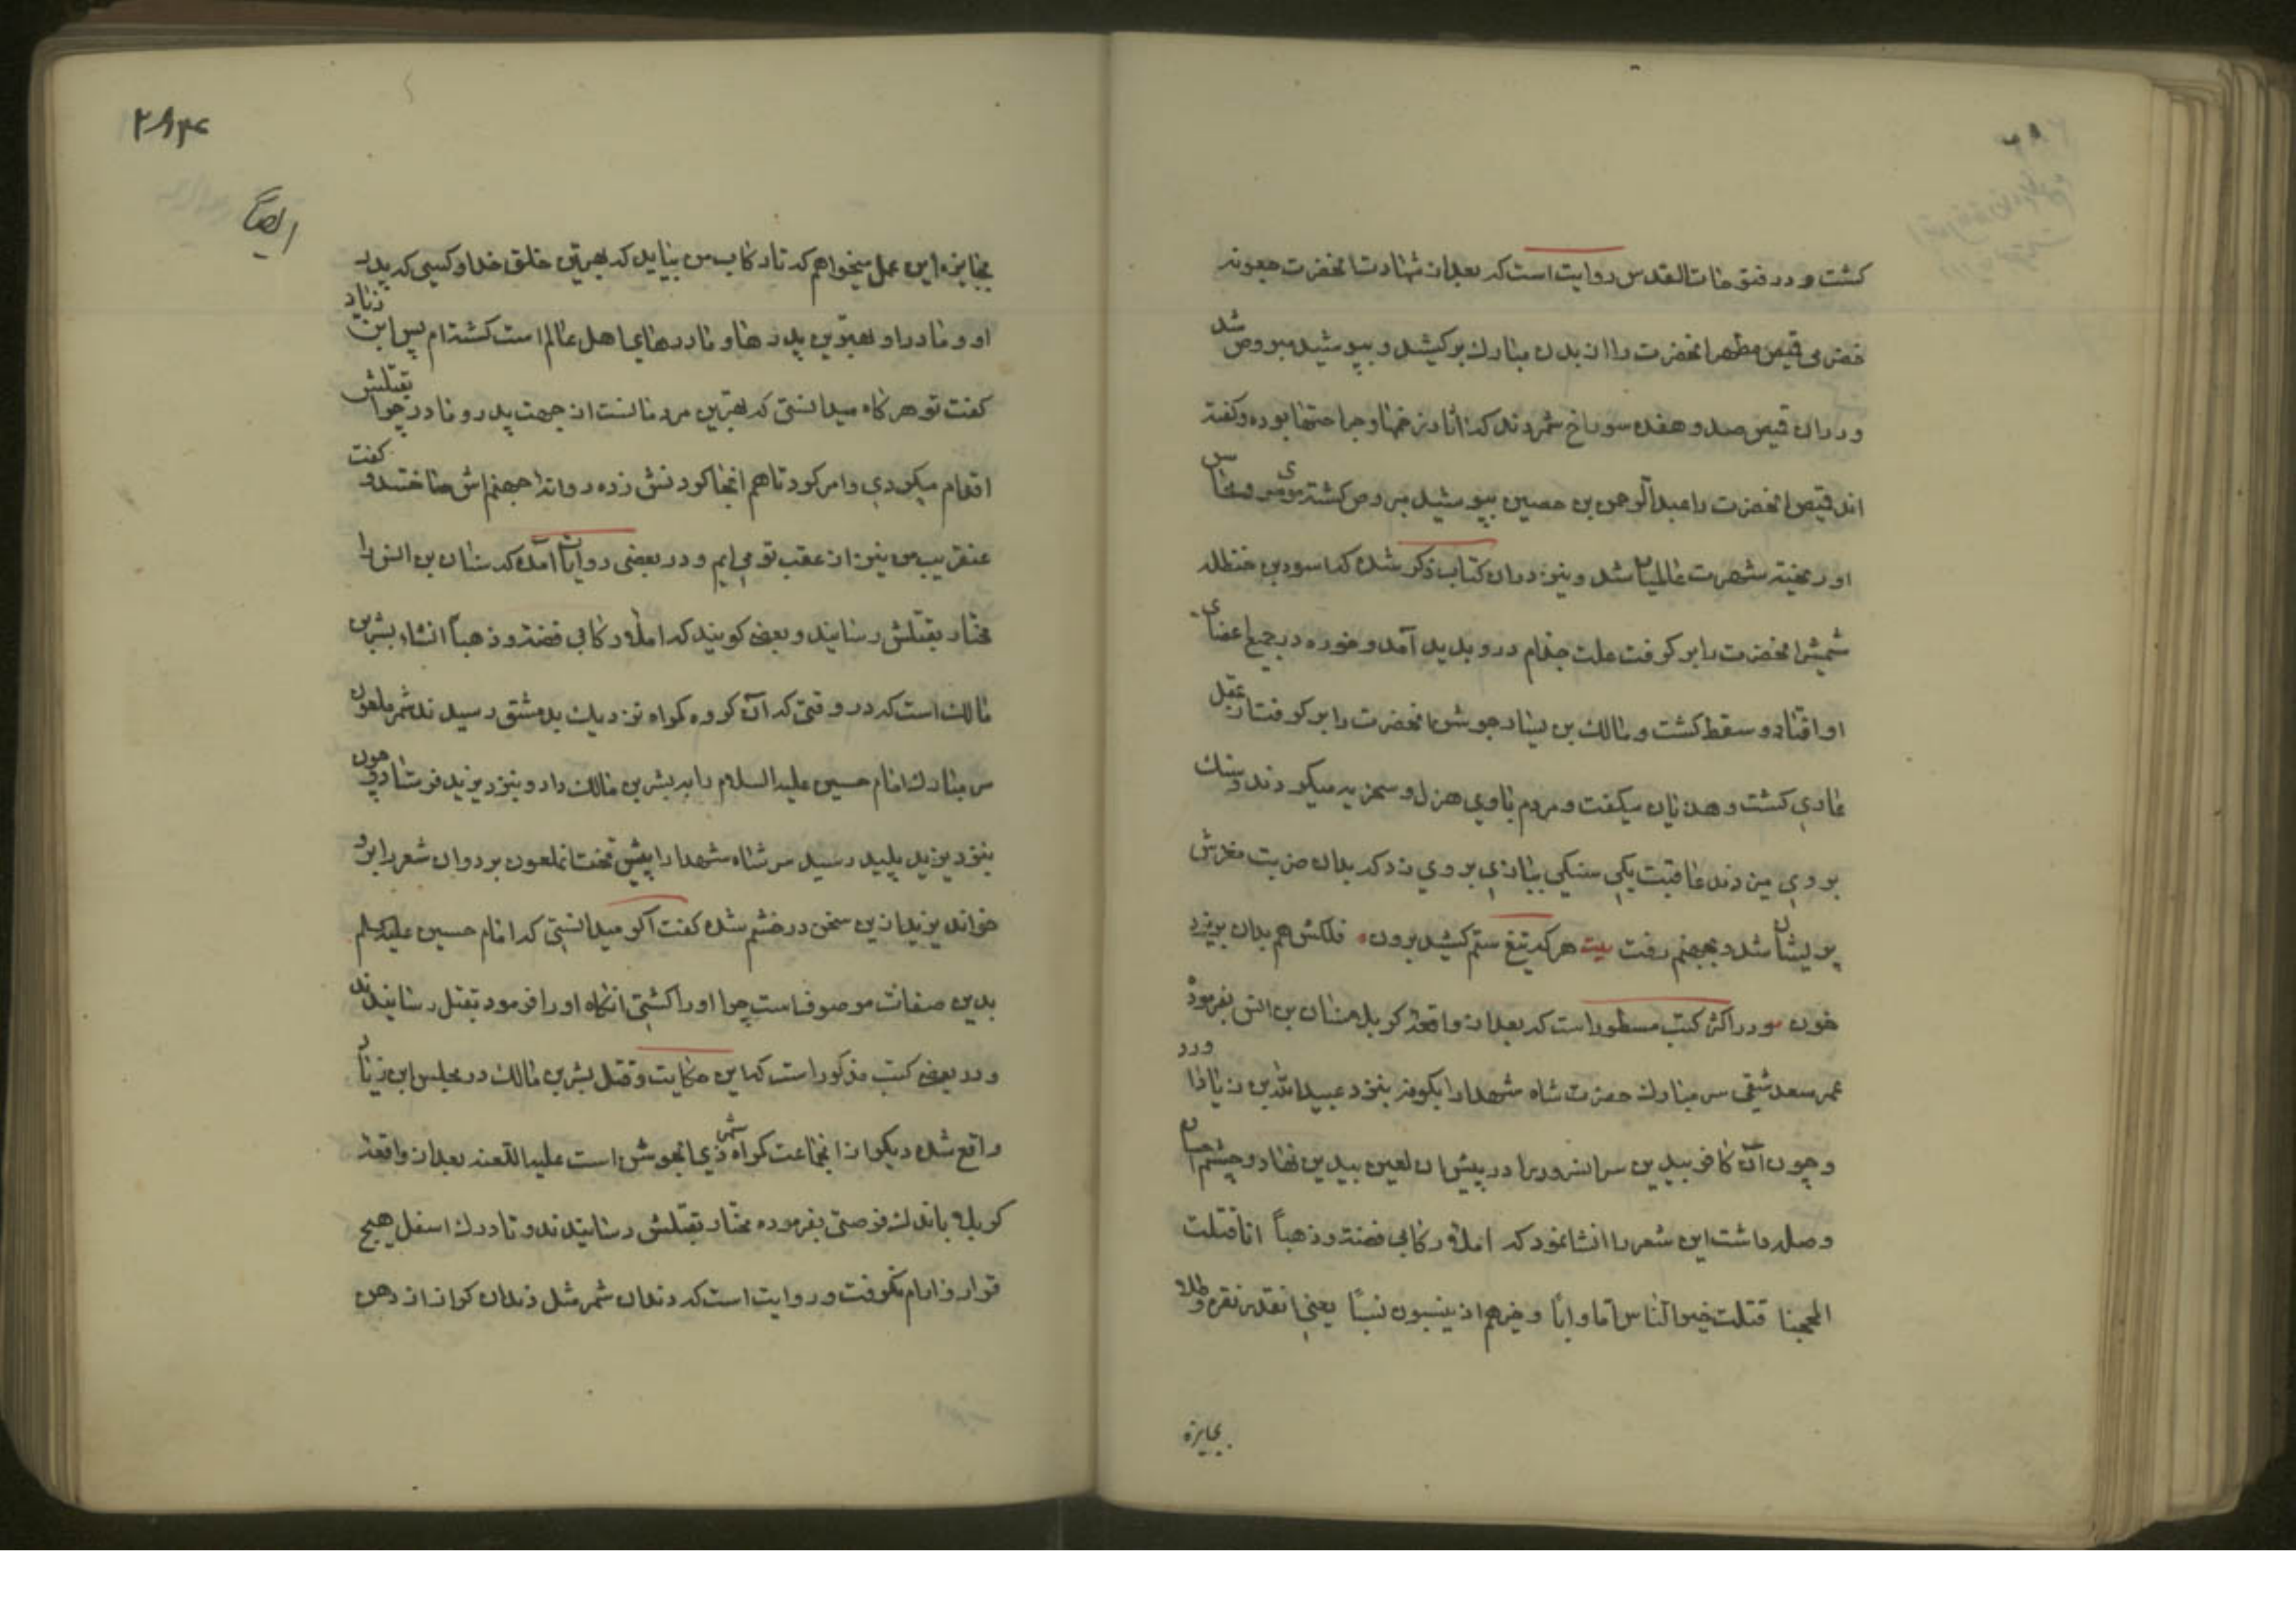 کشت و در فتوحات القدس روایت است که بعد از شهادت آنحضرت جعونه
حضرمی قمیص مطهر آنحضرت را از بدن مبارک برکشید و بپوشید مبروص شد
و در ان قمیص صد و هفده سوراخ شمردند که اثار زخمها و جراحتها بوده و کفته
اند قمیص آنحضرت را عبدالرحمن بن حصین بپوشید مبروص کشته موی سر و محاسن
او ریخته شهرت عالمیان شد و نیز در ان کتاب ذکر شده که اسود بن حنظله
شمشیر آنحضرت را برکرفت علت جذام در و پدید آمد و خوره در جمیع اعضای
او افتاد و سقط کشت و مالک بن یسار جوشن آنحضرت را برکرفت از عقل
عاری کشت و هذیان میکفت و مردم با وی هزل و سخریه میکردند و سنک
بر وی میزدند عاقبت یکی سنکی ببازی بر وی زد که بدان ضربت مغزش
پریشان شد و بجهنم رفت بیت هر که تیغ ستم کشید برون فلکش هم بدان بریزد
خون و در اکثر کتب مسطور است که بعد از واقعه کربلا سنان بن انس بفرموده
عمر سعد شقی سر مبارک حضرت شاه شهدا را بکوفه بنزد عبیدالله بن زیاد اورد
و چون آن کافر بیدین سر انسرور را در پیش ان لعین بیدین نهاد و چشم احسان
و صله داشت این شعر را انشا نمود که املاء رکابی فضة و ذهباً انا قتلت
المحجبا قتلت خیر الناس اما و ابا و خیرهم اذ ینسبون نسبًا یعنی انقد نقره و طلا
بجایزه
۲۸۳
ایضاً
بجایزه این عمل میخواهم که تا رکاب من بیاید که بهترین خلق خدا و کسی که پدر
او و مادر او بهترین پدرها و مادرهای اهل عالم است کشته ام پس ابن زیاد
کفت تو هر کاه میدانستی که بهترین مردمانست از جهت پدر و مادر چرا بقتلش
اقدام میکردی و امر کرد تا هم انجا کردنش زده روانه جهنم اش ساختند و کفت
عنقریب من نیز از عقب تو می ایم و در بعضی روایات آمده که سنان بن انس را
مختار بقتلش رسانید و بعضی کویند که املاء رکابی فضة و ذهباً انشاء بشر بن
مالک است که در وقتی که آن کروه کمراه نزدیک بدمشق رسیدند شمر ملعون
سر مبارک امام حسین علیه السلام را به بشر بن مالک داد و بنزد یزید فرستاد و چون
بنزد یزید پلید رسید سر شاه شهدا را پیش تخت انملعون برد و ان شعر را برو
خواند یزید ازین سخن در خشم شده کفت اکر میدانستی که امام حسین علیه السلام
بدین صفات موصوف است چرا او را کشتی انکاه او را فرمود بقتل رسانیدند
و در بعضی کتب مذکور است که این حکایت و قتل بشر بن مالک در مجلس ابن زیاد
واقع شده دیکر از انجماعت کمراه شمر ذی الجوشن است علیه اللعنه بعد از واقعه
کربلا باندک فرصتی بفرموده مختار بقتلش رسانیدند و تا درک اسفل هیچ
قرار و ارام نکرفت و روایت است که دندان شمر مثل دندان کراز از دهن